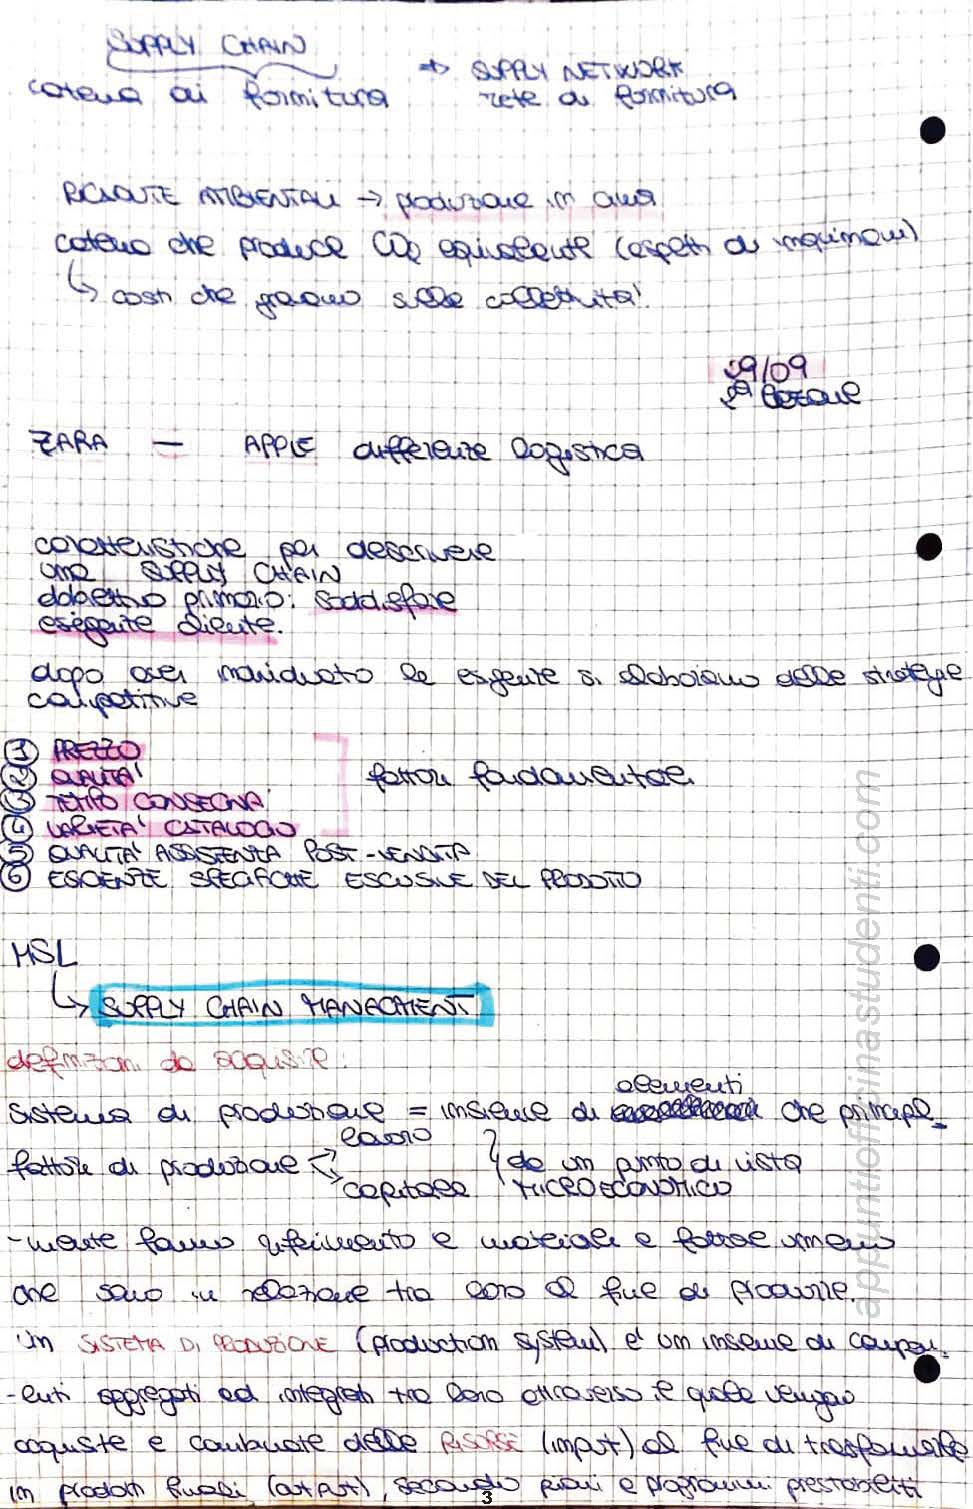 SUPPLY CHAIN ⇒ SUPPLY NETWORK
catena di fornitura rete di fornitura
RICADUTE AMBIENTALI → produzione in Cina
catena che produce CO2 equivalente (aspetti di inquinam)
↳ costi che gravano sulla collettività!
29/09
2ª lezione
ZARA — APPLE differenze logistica
caratteristiche per descrivere
una SUPPLY CHAIN
obbiettivo primario: soddisfare
esigente cliente.
dopo aver individuato le esigenze si elaborano delle strategie
competitive
① PREZZO
② QUALITA'
③ TEMPO CONSEGNA
④ VARIETA' CATALOGO
fattori fondamentali
⑤ QUALITA' ASSISTENZA POST-VENDITA
⑥ ESIGENZE SPECIFICHE ESCLUSIVE DEL PRODOTTO
MSL
↳ SUPPLY CHAIN MANAGMENT
definizioni da acquisire:
elementi
sistema di produzione = insieme di che principal
lavoro
fattori di produzione da un punto di vista
capitale MICROECONOMICO
-mente fanno riferimento a materiale e forza umana
che sono in relazione tra loro al fine di produrre.
Un SISTEMA DI PRODUZIONE (production system) è un insieme di compon-
-enti aggregati ed integrati tra loro attraverso il quale vengono
acquisite e combinate delle RISORSE (input) al fine di trasformarle
in prodotti finali (output), secondo piani e programmi prestabiliti
3
appuntiofficinastudenti.com